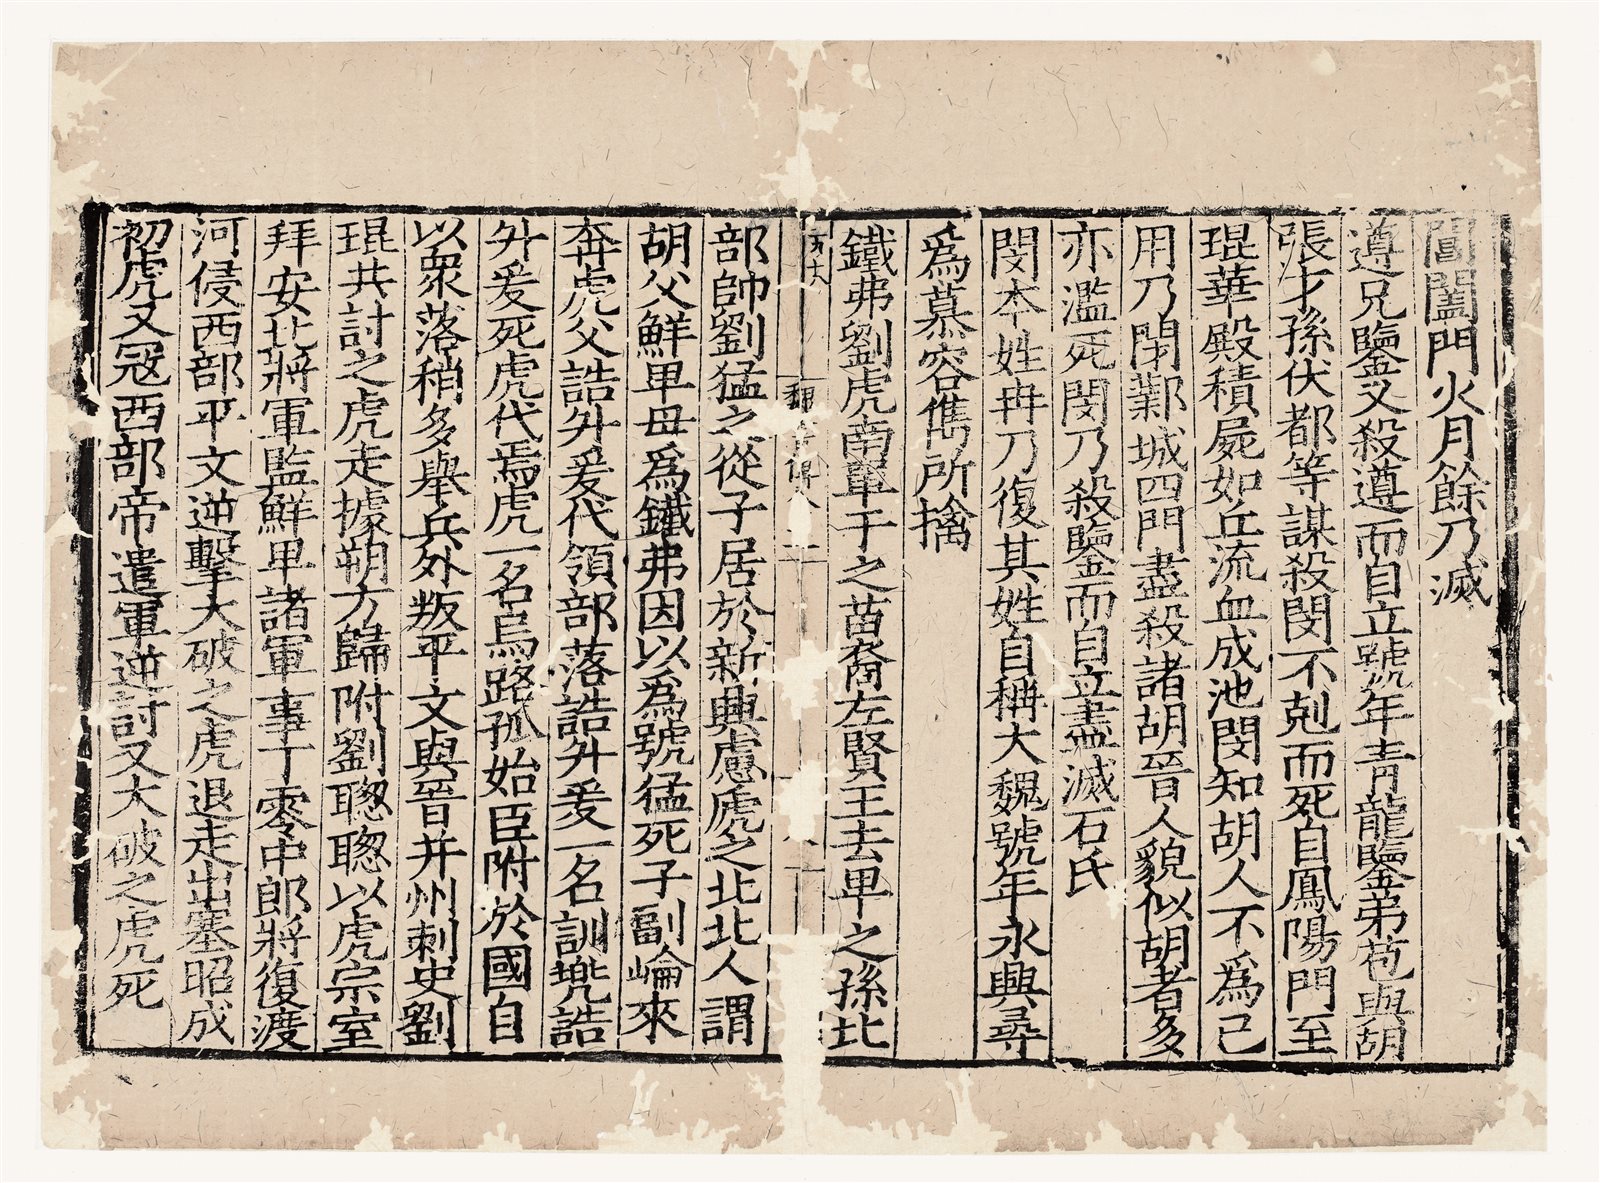 閶闔門火月餘乃滅
遵兄鑒又殺遵而自立號年青龍鑒弟苞與胡
張才孫伏都等謀殺閔不剋而死自鳳陽門至
琨華殿積屍如丘流血成池閔知胡人不爲己
用乃閉鄴城四門盡殺諸胡晉人貌似胡者多
亦濫死閔乃殺鑒而自立盡滅石氏
閔本姓冉乃復其姓自稱大魏號年永興尋
爲慕容儁所擒
鐵弗劉虎南單于之苗裔左賢王去卑之孫北
部帥劉猛之從子居於新興慮虒之北北人謂
胡父鮮卑母爲鐵弗因以爲號猛死子副崘來
奔虎父誥升爰代領部落誥升爰一名訓兜誥
升爰死虎代焉虎一名烏路孤始臣附於國自
以衆落稍多舉兵外叛平文與晉并州刺史劉
琨共討之虎走據朔方歸附劉聰聰以虎宗室
拜安北將軍監鮮卑諸軍事丁零中郎將復渡
河侵西部平文逆擊大破之虎退走出塞昭成
初虎又寇西部帝遣軍逆討又大破之虎死